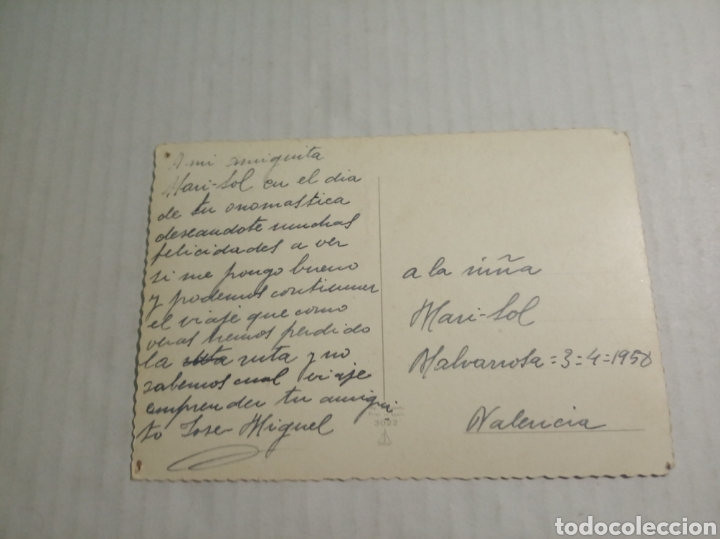 A mi amiguita
Mari-Sol en el dia
de tu onomastica
deseandote muchas
felicidades a ver
si me pongo bueno
y podemos continuar
el viaje que como
veras hemos perdido
la ruta y no
sabemos cual viaje
emprender tu amigui
to Jose Miguel
a la niña
Mari-Sol
Malvarrosa = 3 = 4 = 1950
Valencia
3022
todocoleccion